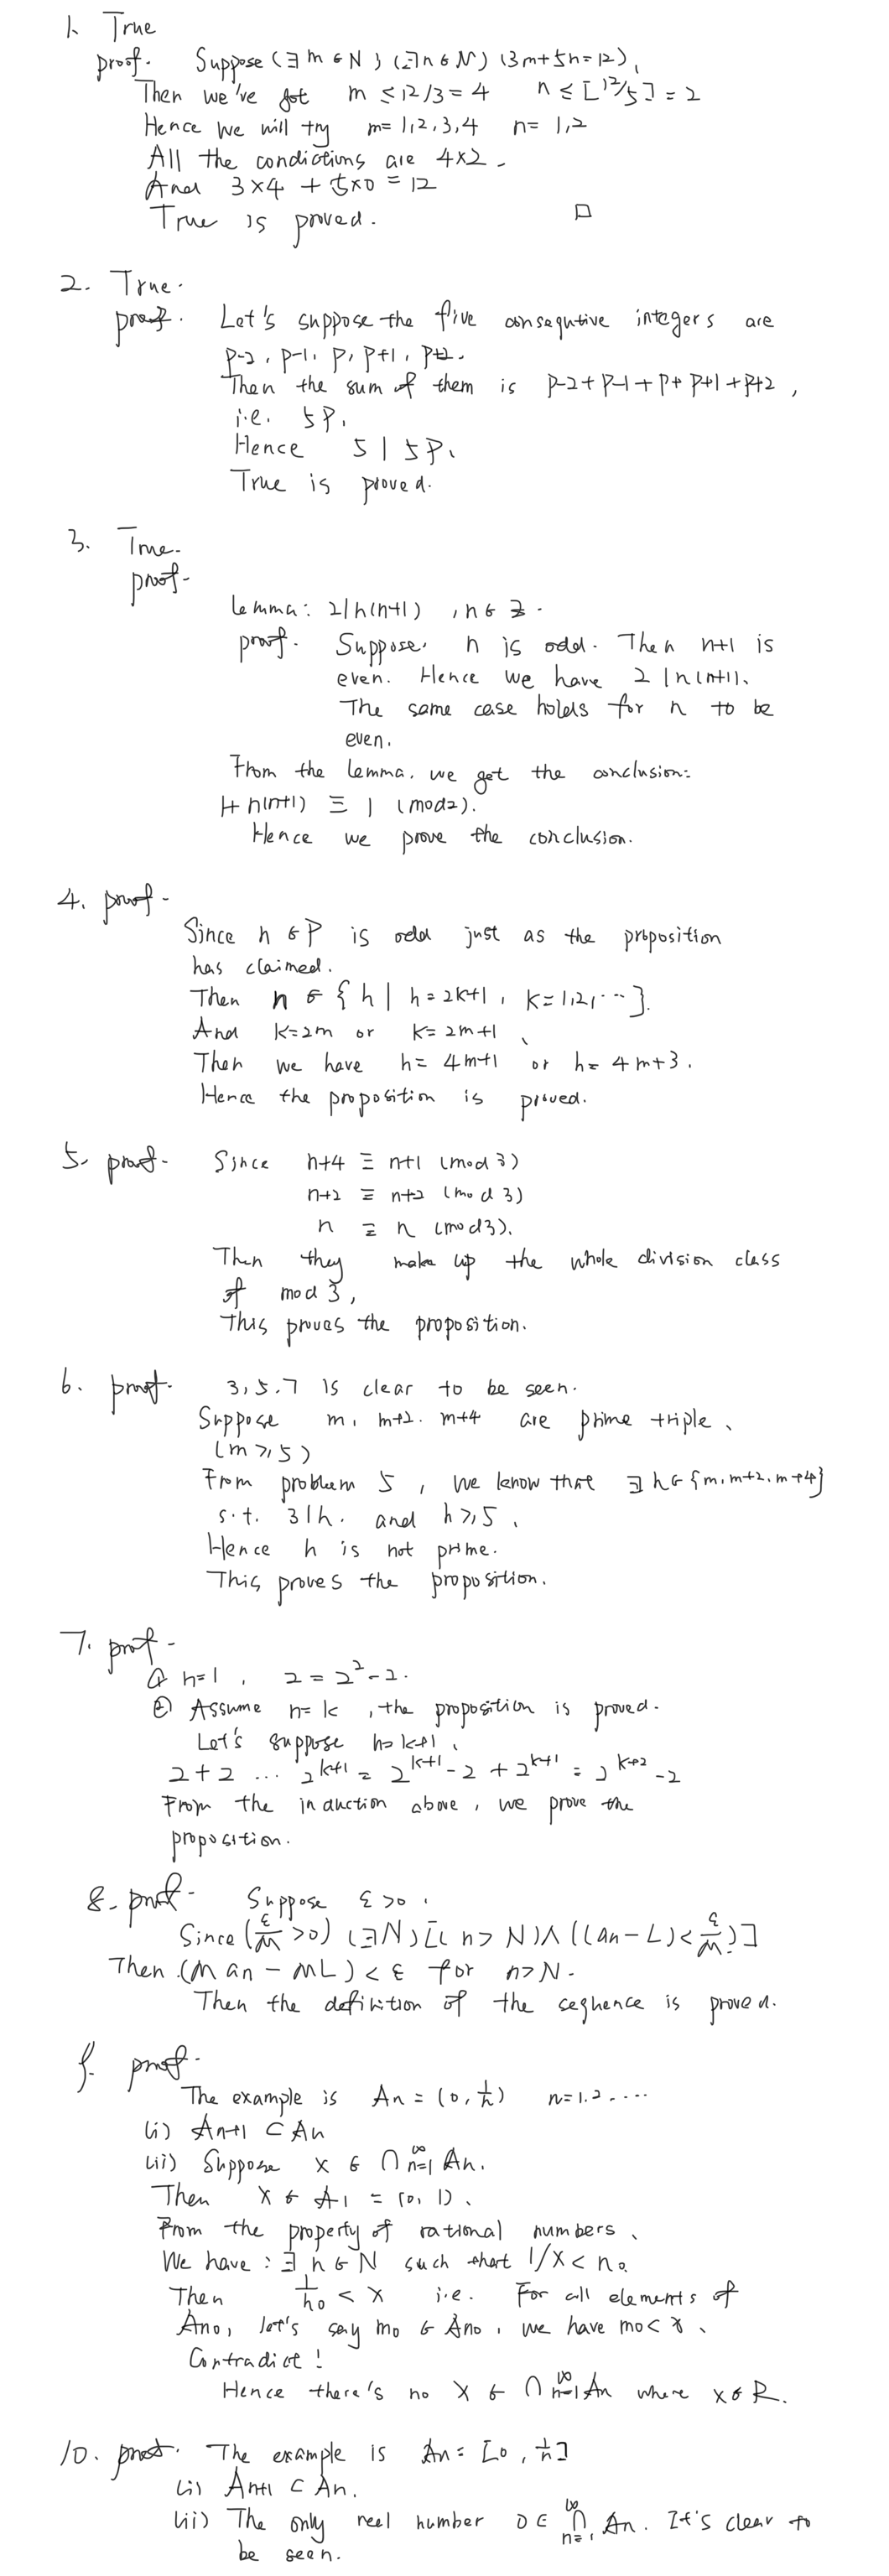 1. True
proof. Suppose (∃ m ∈ N) (∃n ∈ N) (3m+5n=12),
Then we've got m ≤ 12/3 = 4 n ≤ [12/5] = 2
Hence we will try m=1,2,3,4 n= 1,2
All the condictions are 4×2.
And 3×4 + 5×0 = 12
True is proved. □
2. True.
proof. Let's suppose the five consequtive integers are
p-2, p-1, p, p+1, p+2.
Then the sum of them is p-2+p-1+p+p+1+p+2,
i.e. 5p.
Hence 5 | 5p.
True is proved.
3. True.
proof.
Lemma: 2|n(n+1) , n ∈ Z.
proof. Suppose n is odd. Then n+1 is
even. Hence we have 2 | n(n+1).
The same case holds for n to be
even.
From the lemma, we get the conclusion:
1+n(n+1) ≡ 1 (mod2).
Hence we prove the conclusion.
4. proof.
Since n ∈ P is odd just as the proposition
has claimed.
Then n ∈ {n | n=2k+1, k=1,2,...}.
And k=2m or k=2m+1,
Then we have n= 4m+1 or n= 4m+3.
Hence the proposition is proved.
5. proof. Since n+4 ≡ n+1 (mod 3)
n+2 ≡ n+2 (mod 3)
n ≡ n (mod3).
Then they make up the whole division class
of mod 3,
This proves the proposition.
6. proof. 3,5,7 is clear to be seen.
Suppose m, m+2, m+4 are prime triple,
(m ≥ 5)
From problem 5, we know that ∃ n ∈ {m, m+2, m+4}
s.t. 3|n. and n ≥ 5,
Hence n is not prime.
This proves the proposition.
7. proof.
① n=1, 2 = 2²-2.
② Assume n=k, the proposition is proved.
Let's suppose n=k+1,
2+2 ... 2^{k+1} = 2^{k+1} -2 + 2^{k+1} = 2^{k+2} -2
From the induction above, we prove the
proposition.
8. proof. Suppose ε>0.
Since (ε/M >0) (∃N) [( n > N) ∧ ((an-L) < ε/M)]
Then (M an - ML) < ε for n>N.
Then the definition of the sequence is proved.
9. proof.
The example is An = (0, 1/n) n=1,2,....
(i) An+1 ⊂ An
(ii) Suppose x ∈ ∩_{n=1}^∞ An.
Then x ∈ A1 = (0, 1).
From the property of rational numbers,
We have: ∃ n ∈ N such that 1/x < n0
Then 1/n0 < x i.e. For all elements of
An0, let's say m0 ∈ An0, we have m0 < x.
Contradict!
Hence there's no x ∈ ∩_{n=1}^∞ An where x ∈ R.
10. proof. The example is An = [0, 1/n]
(i) An+1 ⊂ An.
(ii) The only reel number 0 ∈ ∩_{n=1}^∞ An. It's clear to
be seen.